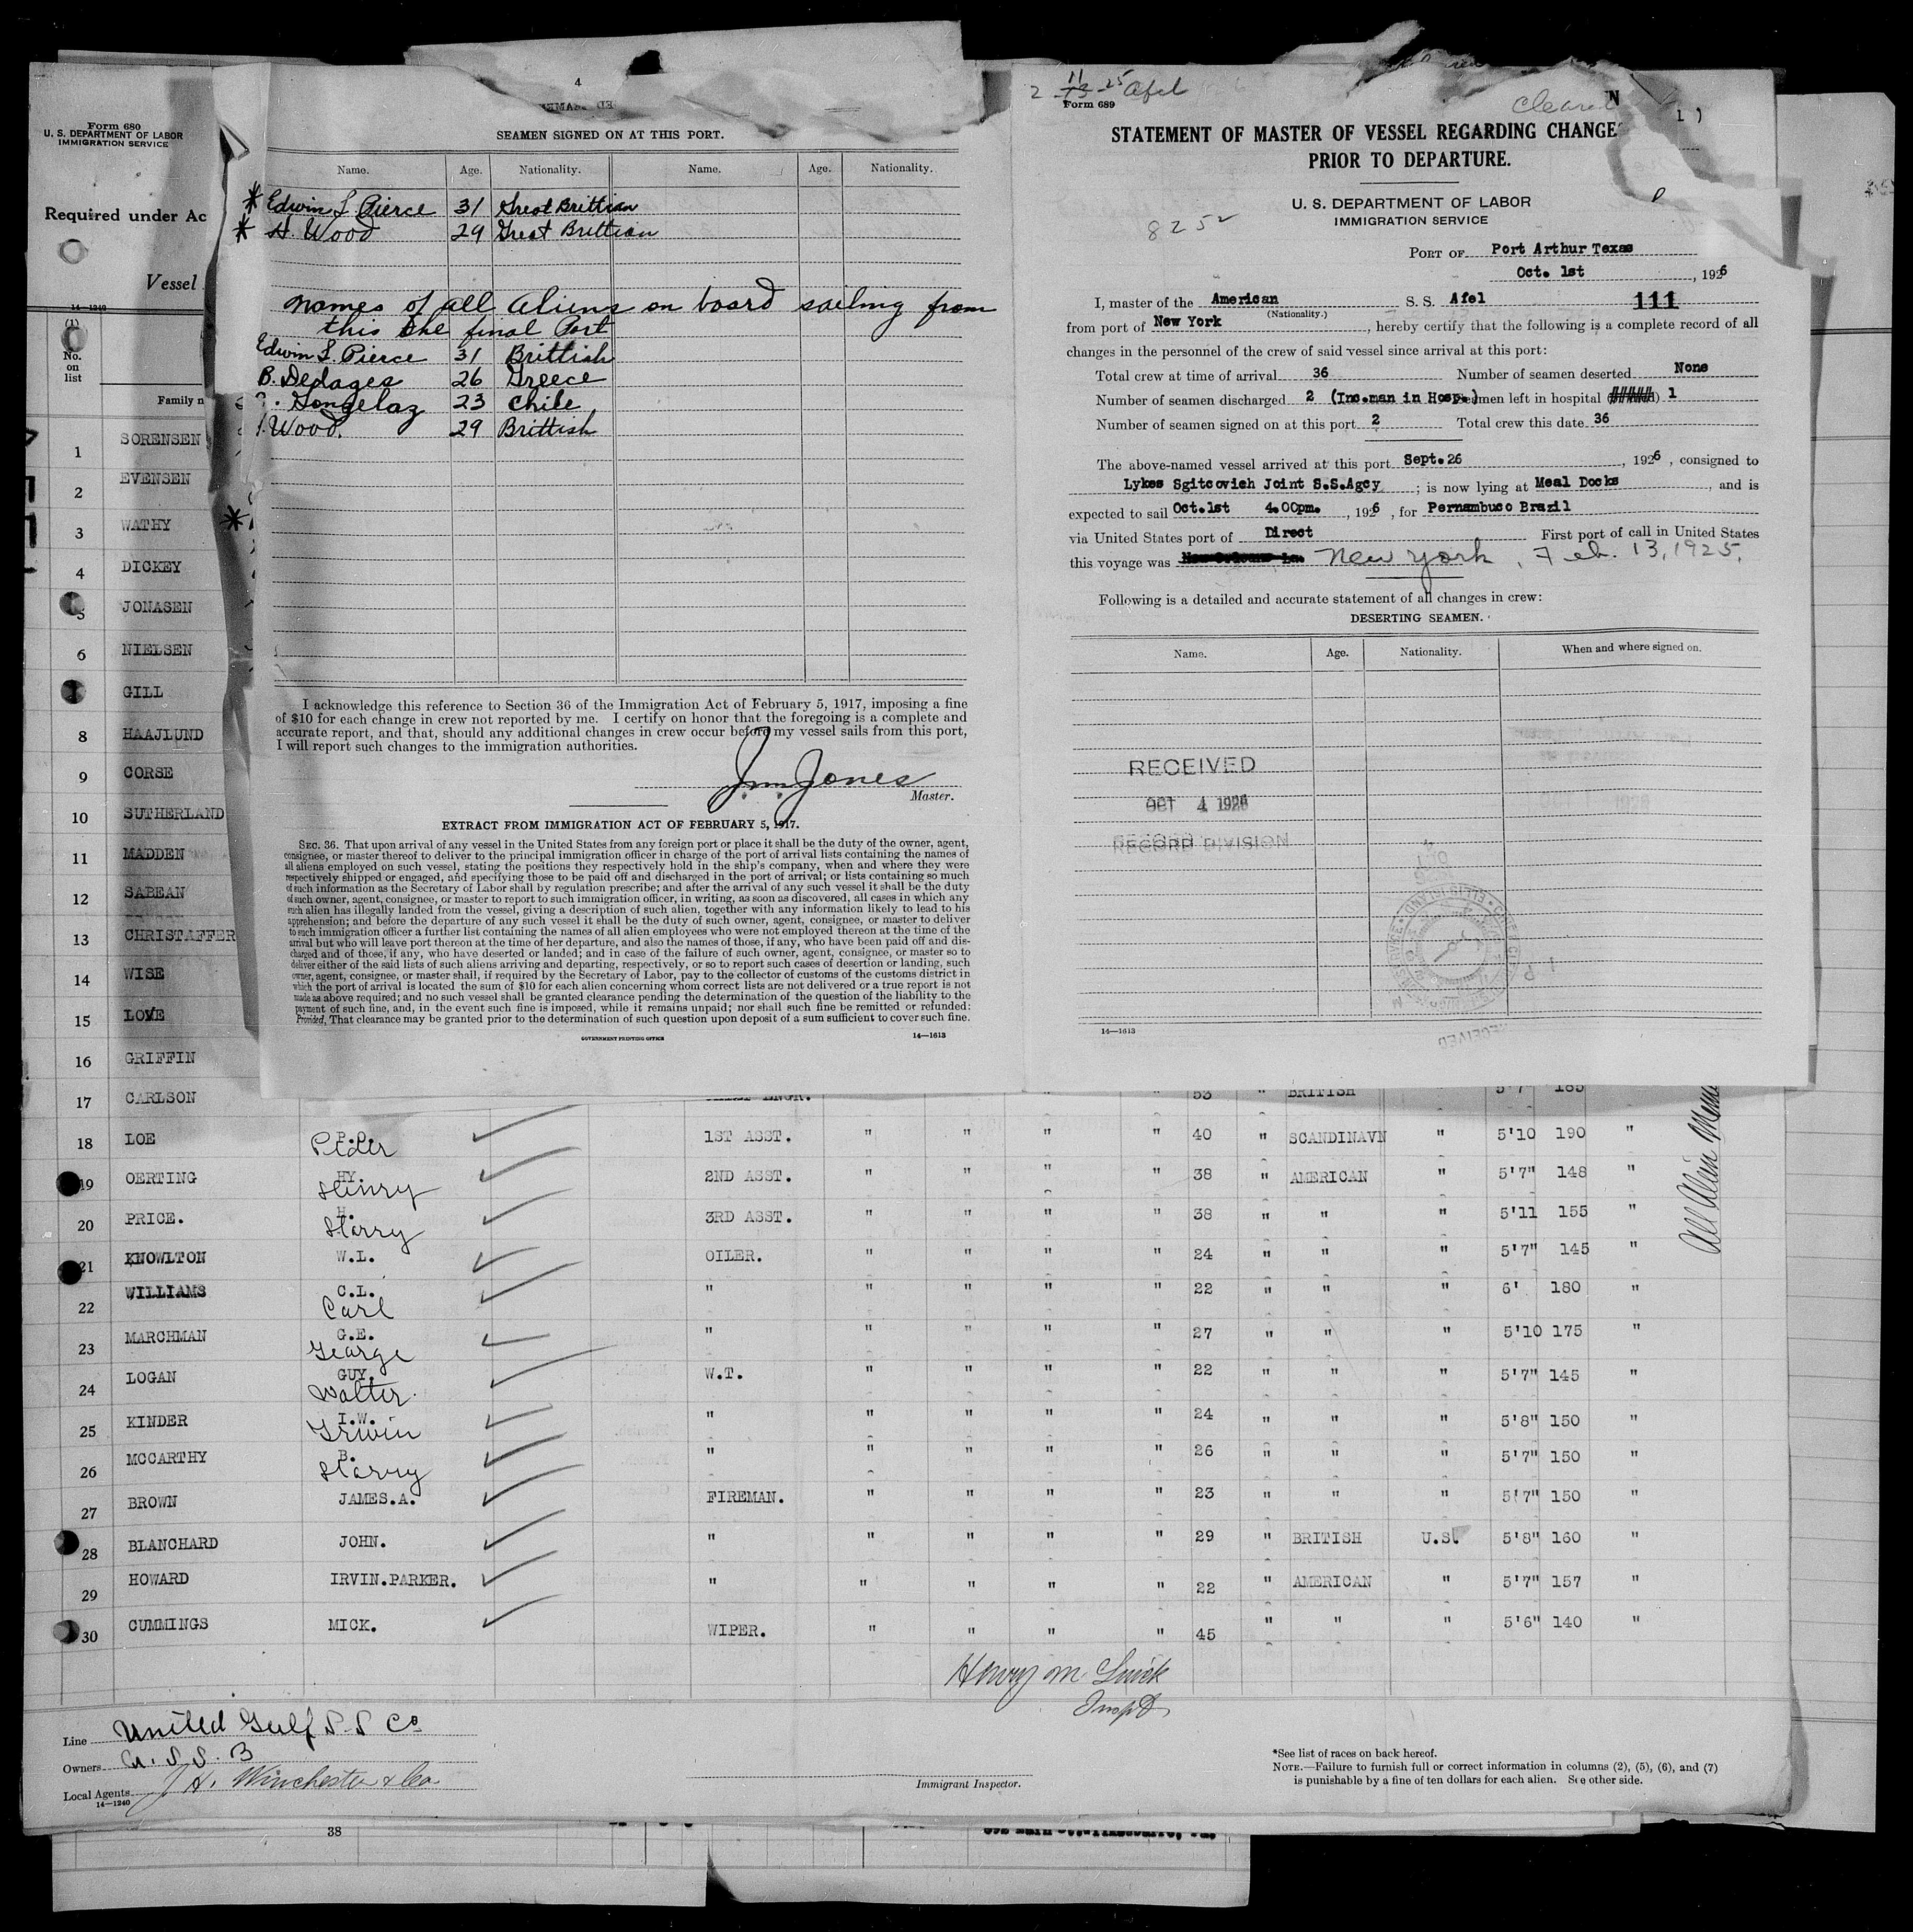 Form 680
U. S. DEPARTMENT OF LABOR
IMMIGRATION SERVICE
Required under Ac
Vessel
14—1240
(1)
No.
on
list
Family n
1 SORENSEN
2 EVENSEN
3 WATHY
4 DICKEY
5 JONASEN
6 NIELSEN
GILL
8 HAAJLUND
9 CORSE
10 SUTHERLAND
11 MADDEN
12 SABEAN
13 CHRISTAFFER
14 WISE
15 LOVE
16 GRIFFIN
4
SEAMEN SIGNED ON AT THIS PORT.
Name. Age. Nationality. Name. Age. Nationality.
* Edwin L Pierce 31 Great Brittian
* H. Wood 29 Great Brittian
names of all aliens on board sailing from
this the final Port
Edwin L. Pierce 31 Brittish
B. Dedages 26 Greece
Gongelaz 23 Chile
Wood. 29 Brittish
I acknowledge this reference to Section 36 of the Immigration Act of February 5, 1917, imposing a fine
of $10 for each change in crew not reported by me. I certify on honor that the foregoing is a complete and
accurate report, and that, should any additional changes in crew occur before my vessel sails from this port,
I will report such changes to the immigration authorities.
Jones
Master.
EXTRACT FROM IMMIGRATION ACT OF FEBRUARY 5, 1917.
SEC. 36. That upon arrival of any vessel in the United States from any foreign port or place it shall be the duty of the owner, agent,
consignee, or master thereof to deliver to the principal immigration officer in charge of the port of arrival lists containing the names of
all aliens employed on such vessel, stating the positions they respectively hold in the ship's company, when and where they were
respectively shipped or engaged, and specifying those to be paid off and discharged in the port of arrival; or lists containing so much
of such information as the Secretary of Labor shall by regulation prescribe; and after the arrival of any such vessel it shall be the duty
of such owner, agent, consignee, or master to report to such immigration officer, in writing, as soon as discovered, all cases in which any
such alien has illegally landed from the vessel, giving a description of such alien, together with any information likely to lead to his
apprehension; and before the departure of any such vessel it shall be the duty of such owner, agent, consignee, or master to deliver
to such immigration officer a further list containing the names of all alien employees who were not employed thereon at the time of the
arrival but who will leave port thereon at the time of her departure, and also the names of those, if any, who have been paid off and dis-
charged and of those, if any, who have deserted or landed; and in case of the failure of such owner, agent, consignee, or master so to
deliver either of the said lists of such aliens arriving and departing, respectively, or so to report such cases of desertion or landing, such
owner, agent, consignee, or master shall, if required by the Secretary of Labor, pay to the collector of customs of the customs district in
which the port of arrival is located the sum of $10 for each alien concerning whom correct lists are not delivered or a true report is not
made as above required; and no such vessel shall be granted clearance pending the determination of the question of the liability to the
payment of such fine, and, in the event such fine is imposed, while it remains unpaid; nor shall such fine be remitted or refunded:
Provided, That clearance may be granted prior to the determination of such question upon deposit of a sum sufficient to cover such fine.
GOVERNMENT PRINTING OFFICE 14—1613
Afel
Form 689
STATEMENT OF MASTER OF VESSEL REGARDING CHANGES
PRIOR TO DEPARTURE.
U. S. DEPARTMENT OF LABOR
IMMIGRATION SERVICE
8252
PORT OF Port Arthur Texas
Oct. 1st, 1926
I, master of the American S. S. Afel 111
(Nationality.)
from port of New York, hereby certify that the following is a complete record of all
changes in the personnel of the crew of said vessel since arrival at this port:
Total crew at time of arrival 36 Number of seamen deserted None
Number of seamen discharged 2 (Inc.man in Hosp.) Seamen left in hospital 1
Number of seamen signed on at this port 2 Total crew this date 36
The above-named vessel arrived at this port Sept. 26, 1926, consigned to
Lykes Sgitcovich Joint S.S.Agcy; is now lying at Meal Docks, and is
expected to sail Oct.1st 4.00pm., 1926, for Pernambuco Brazil
via United States port of Direct First port of call in United States
this voyage was New York, Feb. 13, 1925.
Following is a detailed and accurate statement of all changes in crew:
DESERTING SEAMEN.
Name. Age. Nationality. When and where signed on.
RECEIVED
OCT 4 1926
RECORD DIVISION
14—1613
17 CARLSON 53 " BRITISH 5'7" 185
18 LOE Peder 1ST ASST. " " " " 40 " SCANDINAVN " 5'10 190 "
19 OERTING HY. Henry 2ND ASST. " " " " 38 " AMERICAN " 5'7" 148 "
20 PRICE. H. Harry 3RD ASST. " " " " 38 " " " 5'11 155 "
21 KNOWLTON W.L. OILER. " " " " 24 " " " 5'7" 145 "
22 WILLIAMS C.L. Carl " " " " " 22 " " " 6' 180 "
23 MARCHMAN G.E. George " " " " " 27 " " " 5'10 175 "
24 LOGAN GUY. Walter. W.T. " " " " 22 " " " 5'7" 145 "
25 KINDER I.W. Irwin " " " " " 24 " " " 5'8" 150 "
26 MCCARTHY B. Harry " " " " " 26 " " " 5'7" 150 "
27 BROWN JAMES.A. FIREMAN. " " " " 23 " " " 5'7" 150 "
28 BLANCHARD JOHN. " " " " " 29 " BRITISH U.S. 5'8" 160 "
29 HOWARD IRVIN.PARKER. " " " " " 22 " AMERICAN " 5'7" 157 "
30 CUMMINGS MICK. WIPER. " " " " 45 " " " 5'6" 140 "
All Alien
Line United Gulf S. S Co
Owners U. S. S. B
Local Agents J H. Winchester & Co.
14—1240
Immigrant Inspector.
*See list of races on back hereof.
NOTE.—Failure to furnish full or correct information in columns (2), (5), (6), and (7)
is punishable by a fine of ten dollars for each alien. See other side.
38